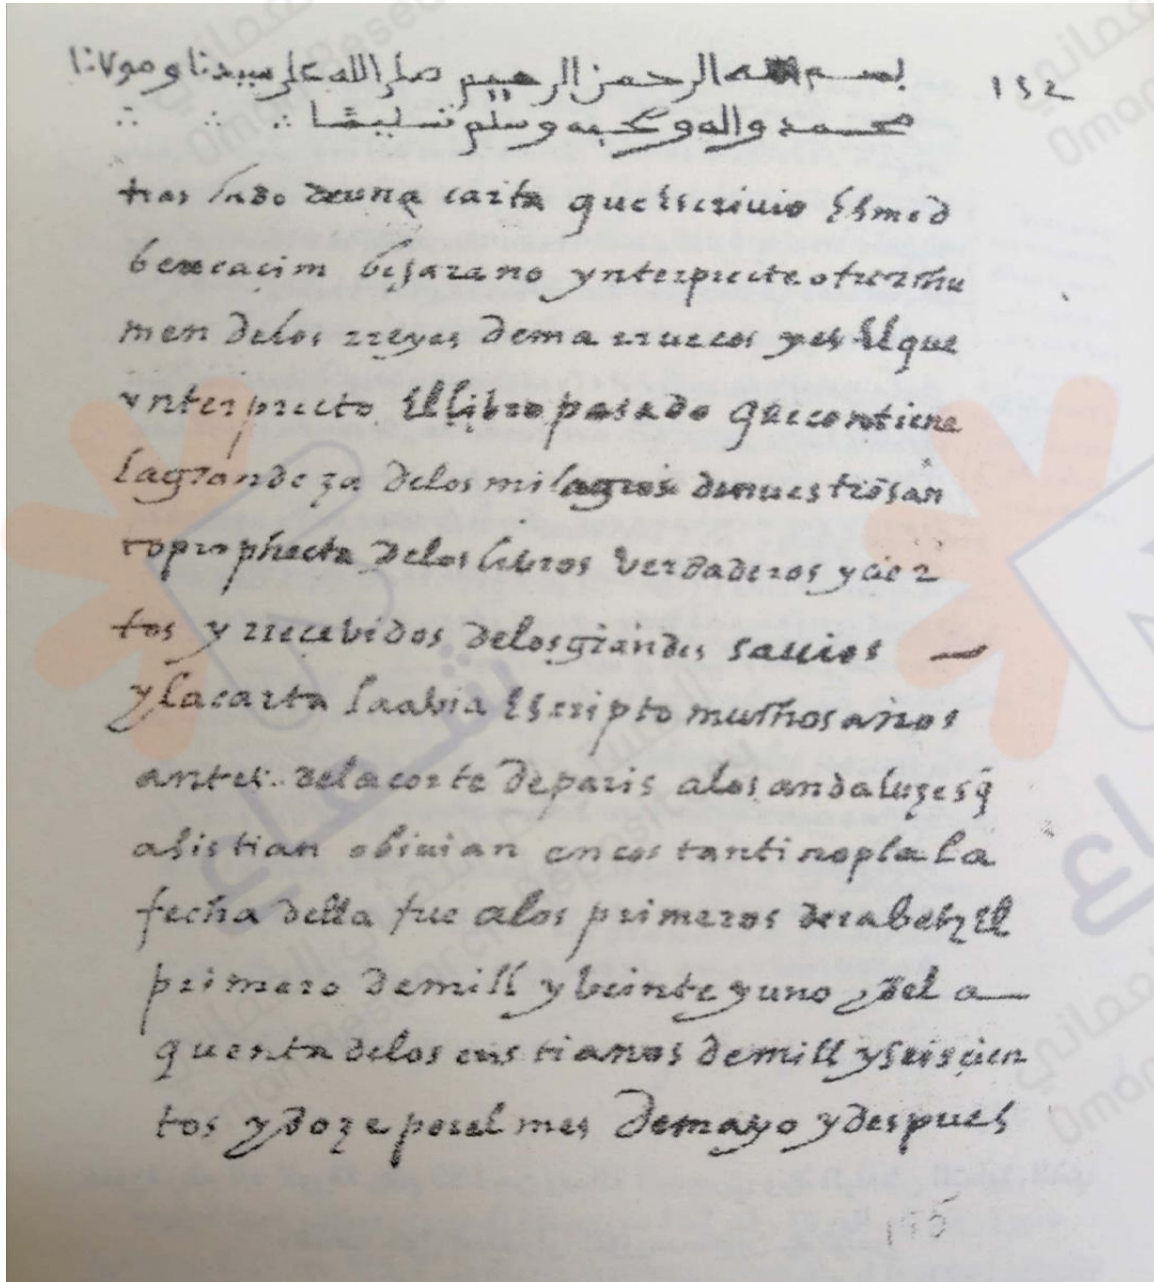 بسم الله الرحمن الرحيم صلى الله على سيدنا ومولانا
152
محمد واله وصحبه وسلم تسليما
traslado deuna carta queEscriuio Ehmed
bencaçim bejarano ynterprete oturzhu
men delos rreyes demarruecos yes Elque
ynterpreto Ellibro pasado quecontiene
lagrandeza delos milagros denuestrosan
toprophecta delos libros verdaderos ycier
tos y rrecebidos delosgrandes sauios
ylacarta laabia Escripto muchos años
antes delacorte deparis alosandaluzesq̃
asistian obiuian encostantinopla La
fecha della fue alos primeros derabehz El
primero demill y beinte yuno, Del a
quenta delos cristianos demill yseisçien
tos ydoze porel mes demayo ydespues